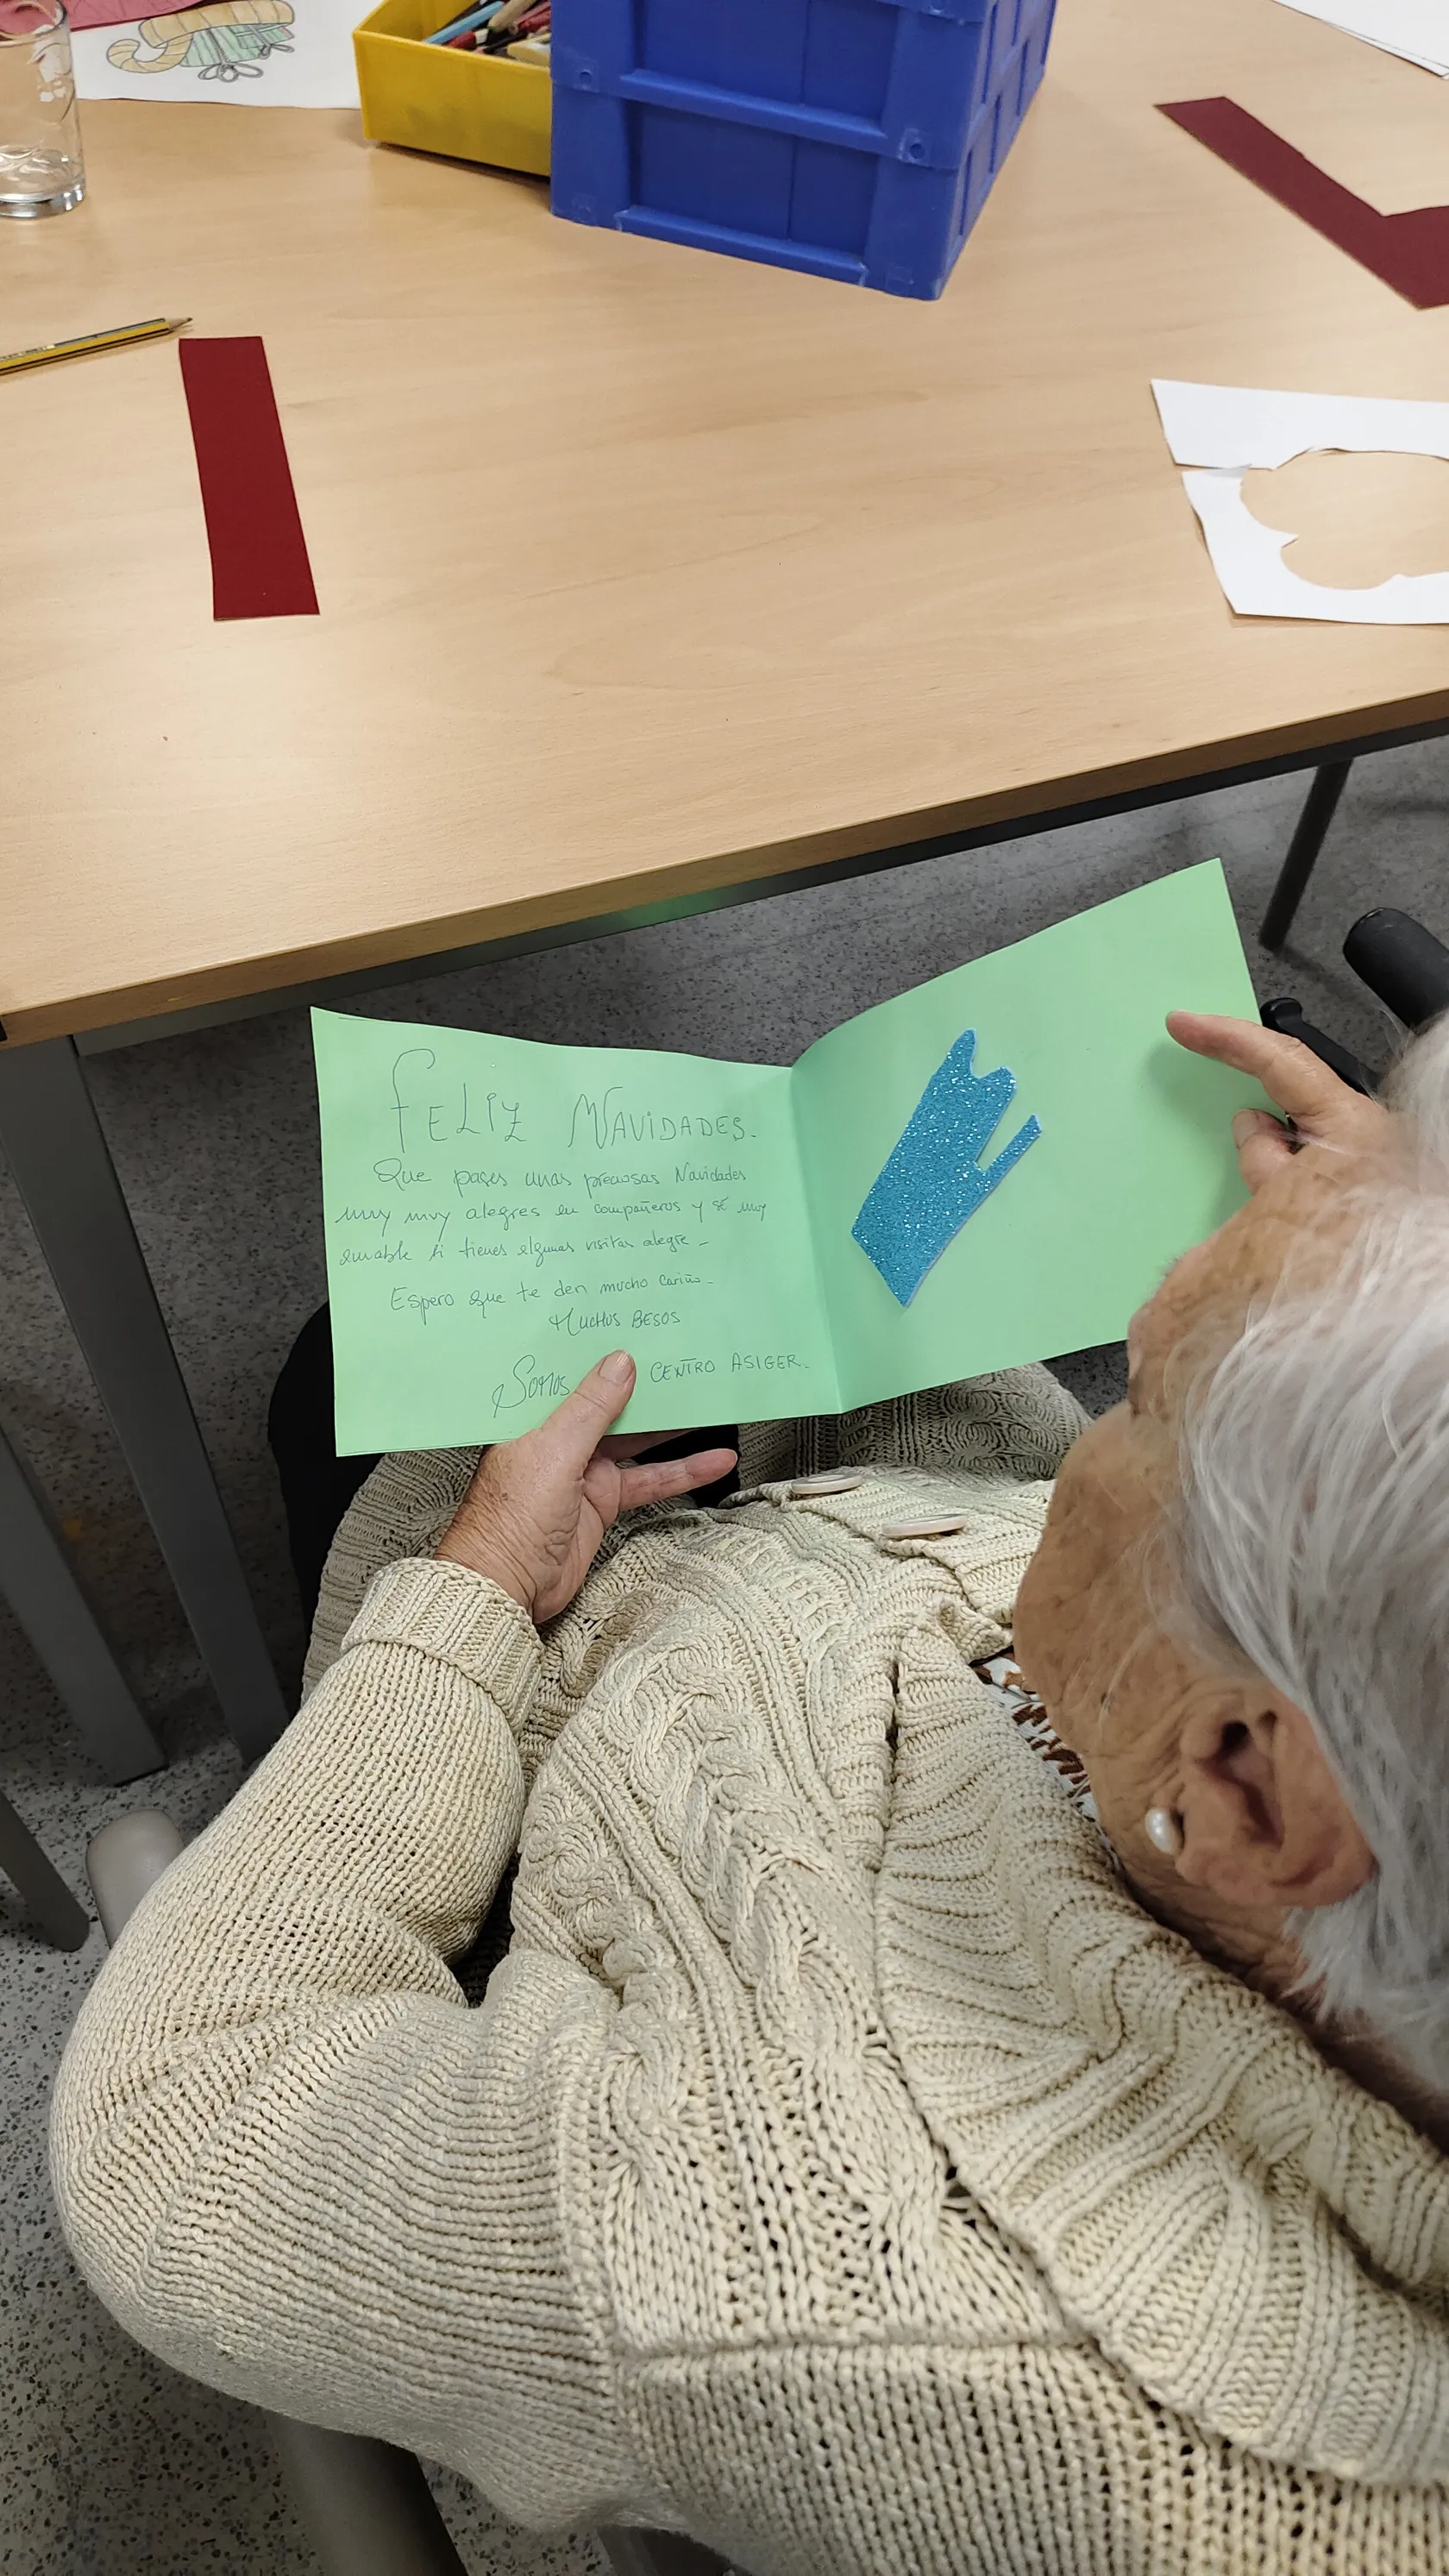 FELIZ NAVIDADES.
Que pases unas preciosas Navidades
muy muy alegres en compañeros y sé muy
amable si tienes algunas visitas alegre -
Espero que te den mucho cariño -
MUCHOS BESOS
Somos CENTRO ASIGER.